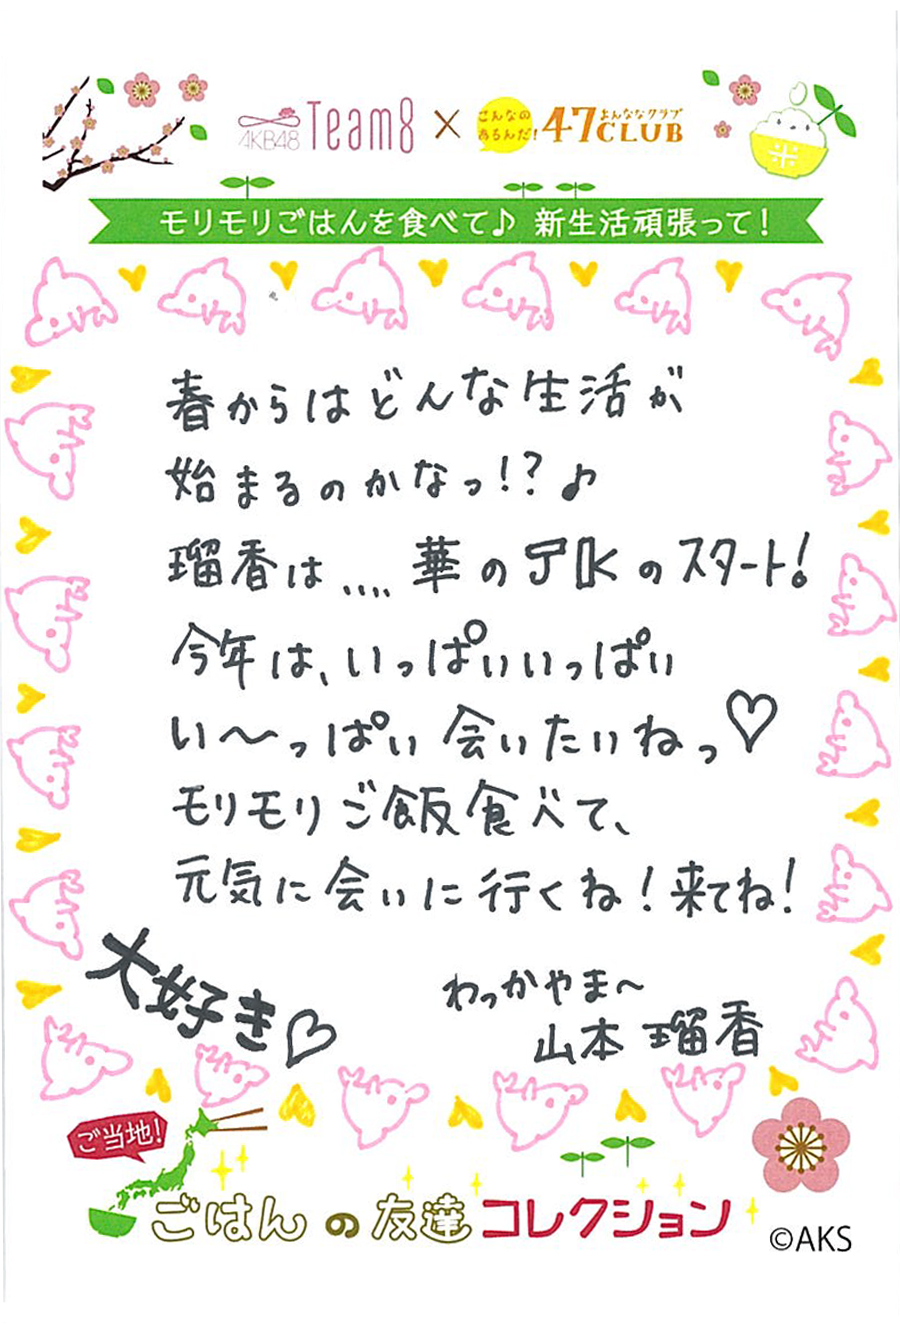 AKB48 Team8 × こんなのあるんだ! 47CLUB よんななクラブ
モリモリごはんを食べて♪ 新生活頑張って!
春からはどんな生活が
始まるのかなっ!?♪
瑠香は.... 華のJKのスタート!
今年は、いっぱいいっぱい
い〜っぱい会いたいねっ♡
モリモリご飯食べて、
元気に会いに行くね!来てね!
大好き♡
わっかやま〜
山本 瑠香
ご当地!
ごはんの友達コレクション
©AKS
米